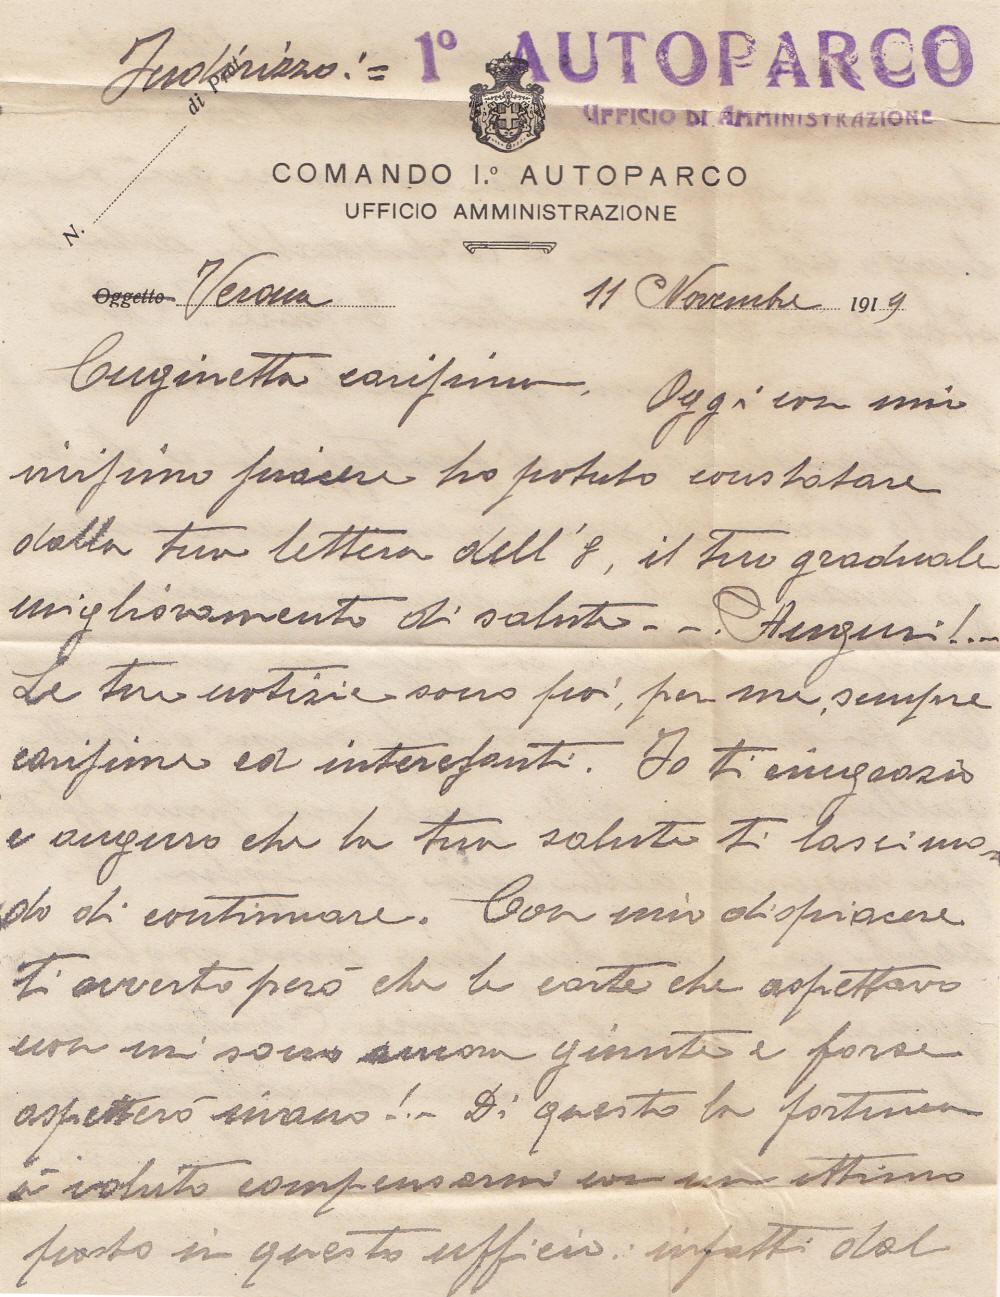 Indirizzo:= 1º AUTOPARCO
UFFICIO DI AMMINISTRAZIONE
di Prot.
N.
COMANDO I.º AUTOPARCO
UFFICIO AMMINISTRAZIONE
Oggetto Verona 11 Novembre 1919
Cuginetta carissima, Oggi con mio
vivissimo piacere ho potuto constatare
dalla tua lettera dell'8, il tuo graduale
miglioramento di salute - - . Auguri!..
Le tue notizie sono poi, per me, sempre
carissime ed interessanti. Io ti ringrazio
e auguro che la tua salute ti lasci mo=
do di continuare. Con mio dispiacere
ti avverto però che le carte che aspettavo
non mi sono ancora giunte e forse
aspetterò invano!.. Di questo la fortuna
à voluto compensarmi con un ottimo
posto in questo ufficio: infatti dal